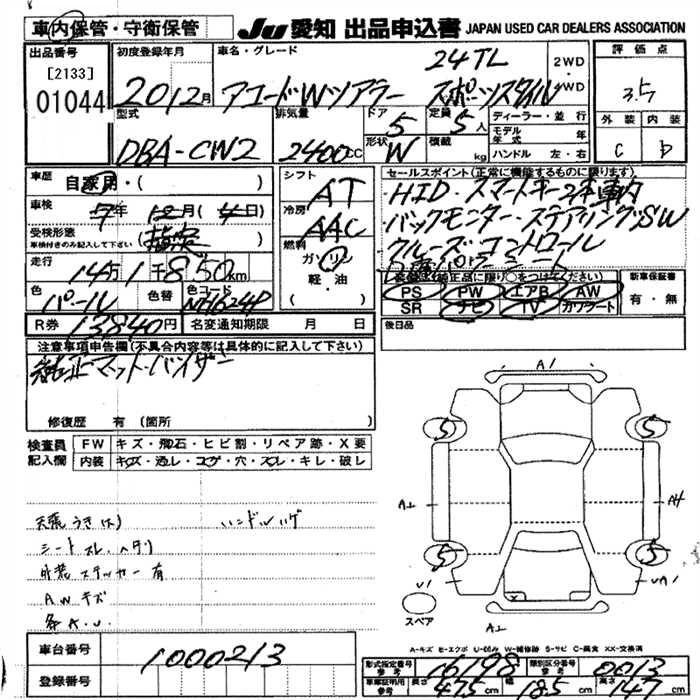 車内保管・守衛保管
JU 愛知 出品申込書 JAPAN USED CAR DEALERS ASSOCIATION
出品番号
[2133]
01044
初度登録年月
20 12月
車名・グレード
24TL
アコードWツアラー スポーツスタイル
2WD
4WD
評価点
3.5
外装 内装
C b
型式
DBA-CW2
排気量
2400cc
ドア
5
定員
5人
形状
W
積載
kg
ディーラー・並行
モデル年式 年
ハンドル 左・右
車歴
自家用・( )
車検
7年 12月(4日)
受検形態
車検付きのみ記入して下さい
走行
14万1千850km
色
パール
色替
色コード
NH624P
R券 13840円 名変通知期限 月 日
シフト
AT
冷房
AAC
燃料
ガソリン
軽・油
セールスポイント(正常に機能するものに限ります)
・HID・スマートキー2本車内
バックモニター・ステアリングSW
クルーズコントロール
PS PW エアB AW
SR ナビ TV カワシート
新車保証書
有・無
後日品
注意事項申告欄(不具合内容等は具体的に記入して下さい)
純正マット・バイザー
修復歴 有(箇所
検査員記入欄
FW キズ・飛石・ヒビ割・リペア跡・X要
内装 キズ・汚レ・コゲ・穴・スレ・キレ・破レ
天張うき(大) ハンドルハゲ
シートスレ、ヘタリ
外装ステッカー有
AWキズ
各A.U.
A1
5 5
A1 A4
5 5
U1 UA1
スペア
A1
A-キズ E-エクボ U-凹み W-補修跡 S-サビ C-腐食 XX-交換済
車台番号
1000213
登録番号
形式指定番号参考 16198 類別区分番号参考 0013
車庫証明用参考 長さ 475cm 幅 185cm 高さ 147cm